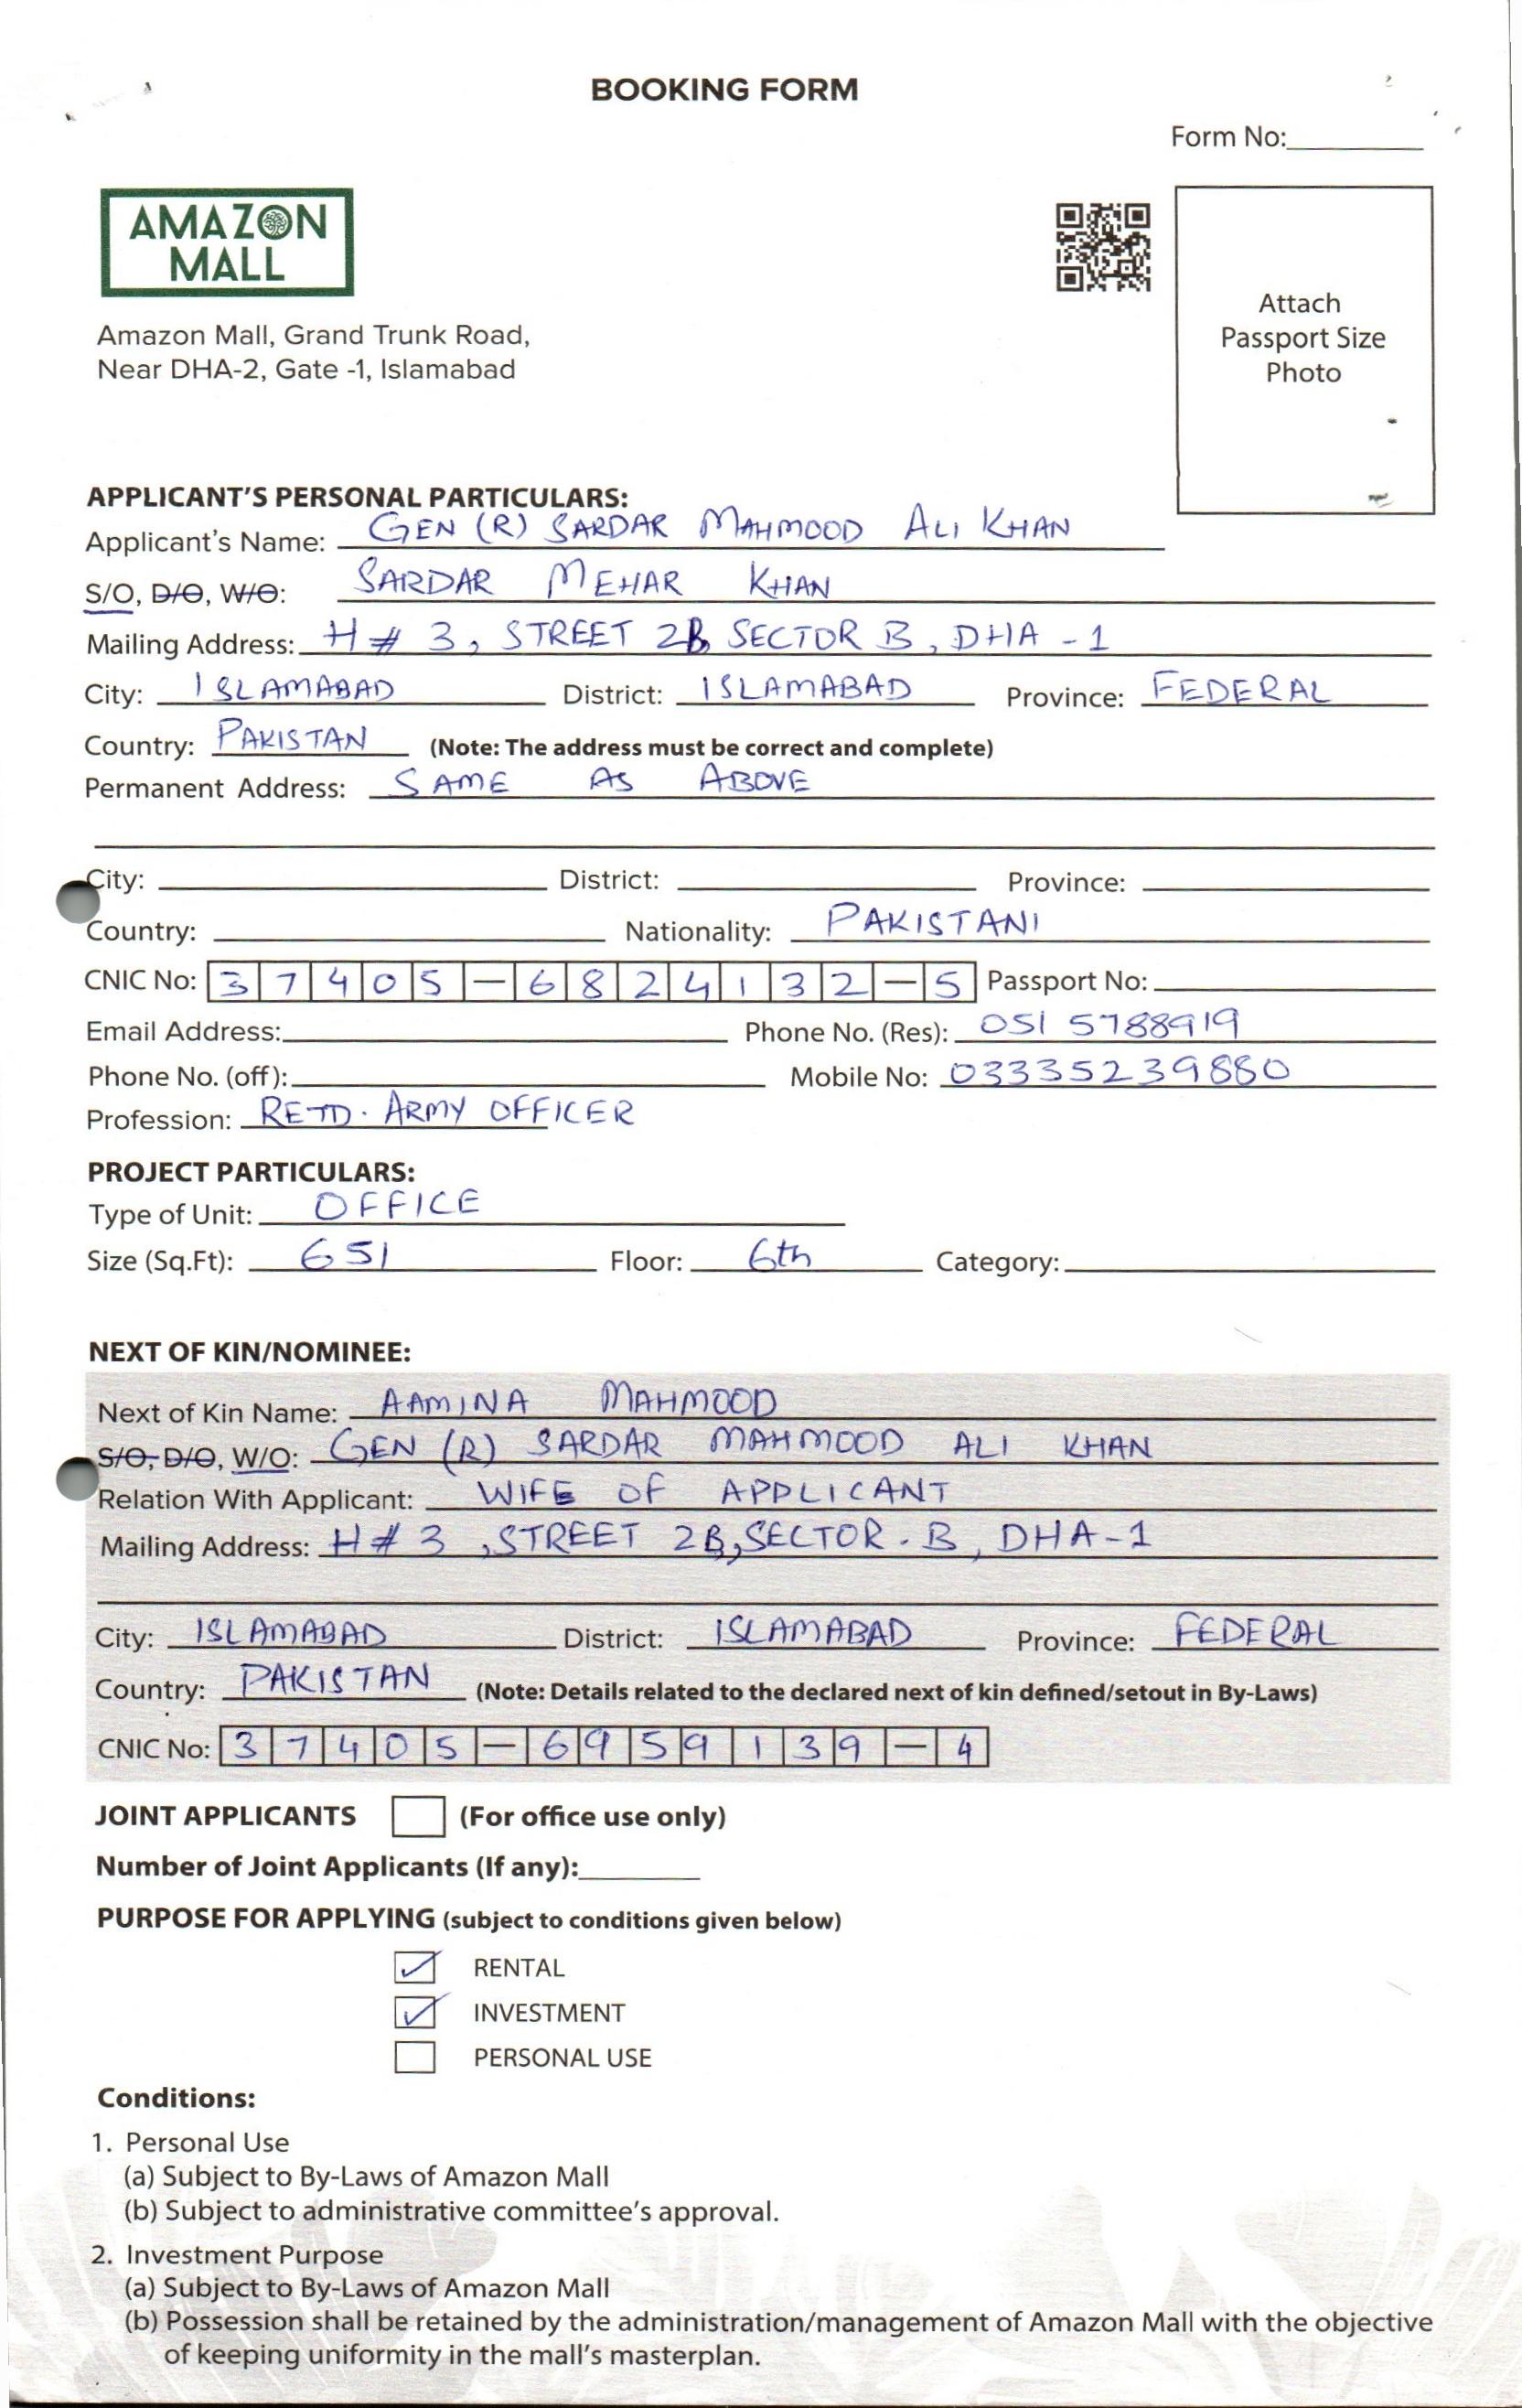 BOOKING FORM
Form No:
AMAZON
MALL
Amazon Mall, Grand Trunk Road,
Near DHA-2, Gate -1, Islamabad
Attach
Passport Size
Photo
APPLICANT'S PERSONAL PARTICULARS:
Applicant's Name: GEN (R) SARDAR MAHMOOD ALI KHAN
S/O, D/O, W/O: SARDAR MEHAR KHAN
Mailing Address: H# 3, STREET 2B, SECTOR B, DHA -1
City: ISLAMABAD District: ISLAMABAD Province: FEDERAL
Country: PAKISTAN (Note: The address must be correct and complete)
Permanent Address: SAME AS ABOVE
City: District: Province:
Country: Nationality: PAKISTANI
CNIC No: 37405-6824132-5 Passport No:
Email Address: Phone No. (Res): 051 5788919
Phone No. (off): Mobile No: 03335239880
Profession: RETD. ARMY OFFICER
PROJECT PARTICULARS:
Type of Unit: OFFICE
Size (Sq.Ft): 651 Floor: 6th Category:
NEXT OF KIN/NOMINEE:
Next of Kin Name: AAMINA MAHMOOD
S/O, D/O, W/O: GEN (R) SARDAR MAHMOOD ALI KHAN
Relation With Applicant: WIFE OF APPLICANT
Mailing Address: H# 3, STREET 2B, SECTOR-B, DHA-1
City: ISLAMABAD District: ISLAMABAD Province: FEDERAL
Country: PAKISTAN (Note: Details related to the declared next of kin defined/setout in By-Laws)
CNIC No: 37405-6959139-4
JOINT APPLICANTS (For office use only)
Number of Joint Applicants (If any):
PURPOSE FOR APPLYING (subject to conditions given below)
RENTAL
INVESTMENT
PERSONAL USE
Conditions:
1. Personal Use
(a) Subject to By-Laws of Amazon Mall
(b) Subject to administrative committee's approval.
2. Investment Purpose
(a) Subject to By-Laws of Amazon Mall
(b) Possession shall be retained by the administration/management of Amazon Mall with the objective
of keeping uniformity in the mall's masterplan.